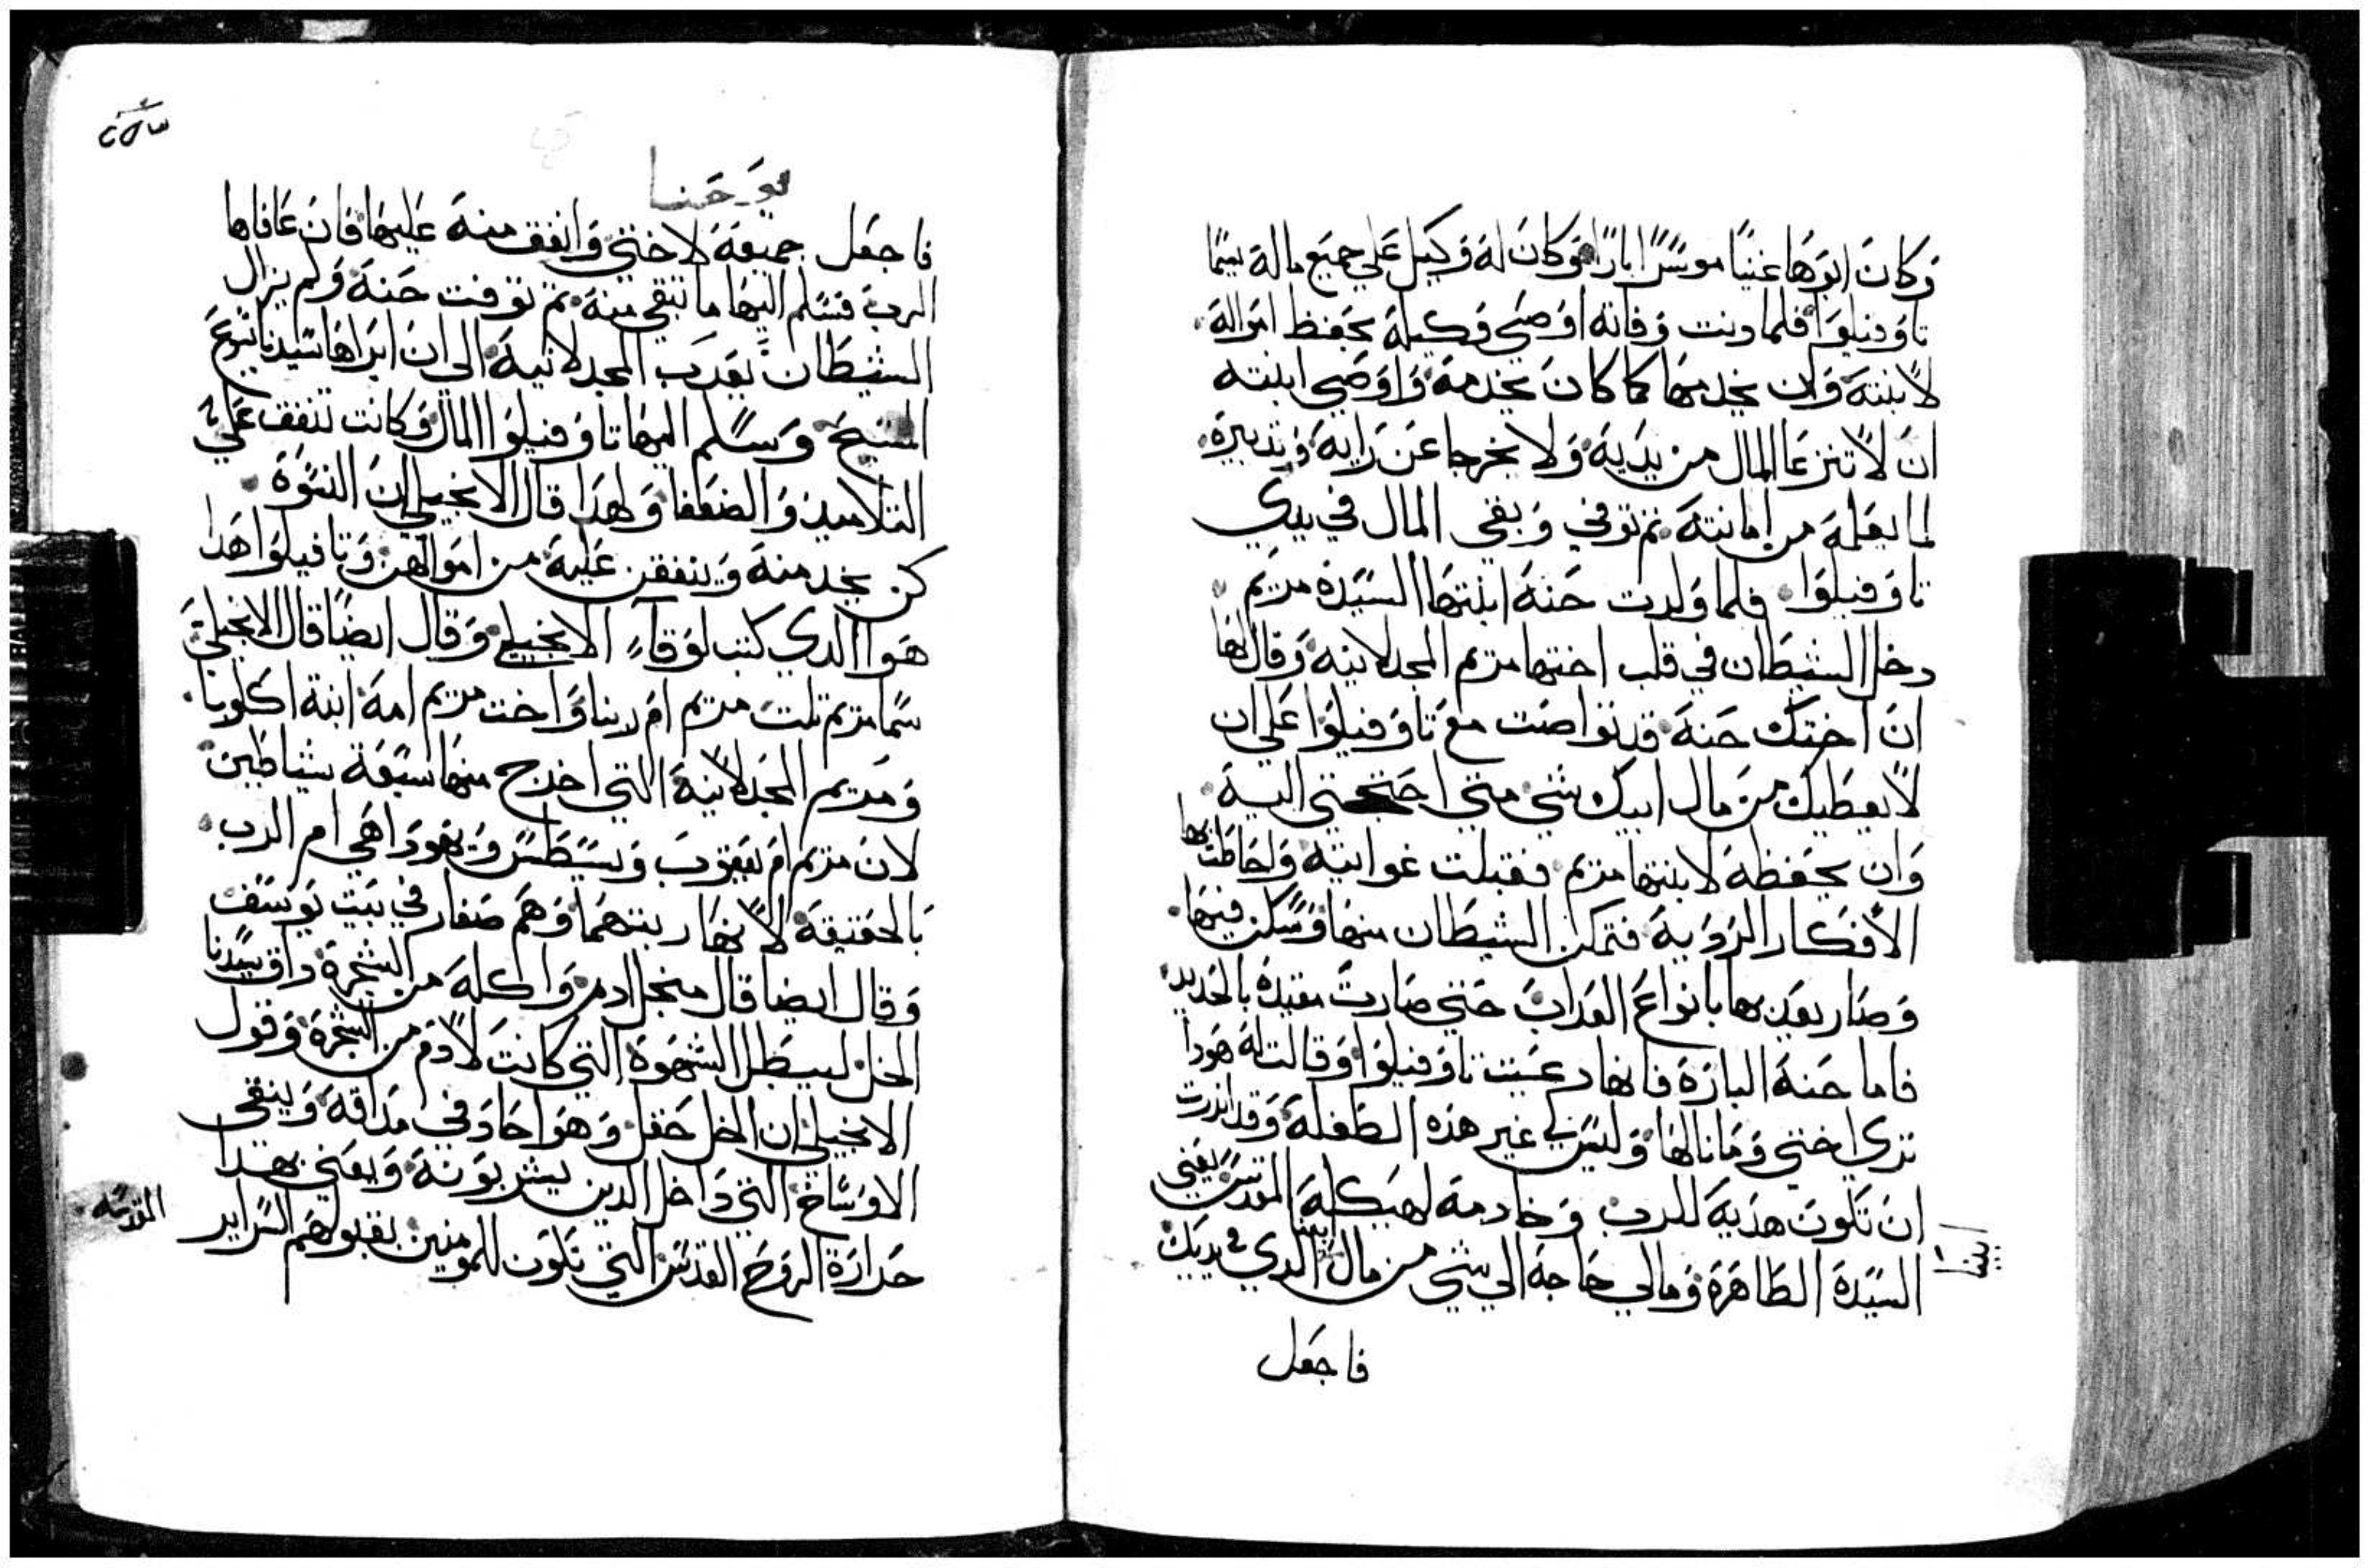 وكان ابوهما غنيا موسرا بارا وكان له وكيل علي جميع ماله يسما
تاوفيلوا فلما دنت وفاته اوصي وكيله بحفظ امواله
لابنته وان يخدمها كما كان يخدمه واوصي ابنته
ان لا تنزعا المال من يديه ولا يخرجا عن رايه وتدبيره
لما يعلمه من امانته تم توفي وبقي المال في يدي
تاوفيلوا فلما ولدت حنه ابنتها السيدة مريم
دخل الشيطان في قلب اختها مريم المجدلانيه وقال لها
ان اختك حنه قد تواصت مع تاوفيلوا علي ان
لا يعطيك من مال ابيك شي متي احتجتي اليه
وان يحفظه لابنتها مريم فقبلت غوايته واحاطت بها
الافكار الرديه فتمكن الشيطان منها وسكن فيها
وصار يعذبها بانواع العداب حتي صارت مقيدة بالحديد
فاما حنه البارة فانها دعت تاوفيلوا وقالت له هودا
تري اختي وما نالها وليس لي غير هذه الطفله وقد اندرت
ان تكون هديه للرب وخادمة لهيكله المقدس يعني
السيدة الطاهرة ومالي حاجه الي شي من مال ابينا الدي في يديك
ابينا
فاجعل
يوحنا
فاجعل جميعه لاختي وانفق منه عليها فان عافاها
الرب فسلم اليها ما تبقي منه تم توفت حنه ولم يزال
الشيطان يعدب المجدلانيه الي ان ابراها سيدنا يسوع
المسيح وسلم اليها تاوفيلوا المال وكانت تنفق علي
التلاميذ والضعفا ولهدا قال الانجيلي ان النسوة
كن يخدمنه وينفقن عليه من اموالهن وتافيلوا هدا
هوا الدي كتب لوقا الانجيلي وقال ايضا قال الانجيلي
سما مريم تلت مريم ام ربنا واخت مريم امه ابنة اكلوبا
ومريم المجدلانية التي اخرج منها سبعة شياطين
لان مريم ام يعقوب ويسطس ويهودا هي ام الرب
بالحقيقة لانها ربتهما وهم صغار في بيت يوسف
وقال ايضا قال من اجل ادم واكله من الشجرة داق سيدنا
الخل ليبطل الشهوة التي كانت لادم من الشجرة وقول
الانجيلي ان الخل حقل وهوا حاد في مداقه وينقي
الاوساخ التي داخل الدين يشربونه ويعني بهدا
حرارة الروح القدس التي تكون للمومنين بقبولهم السراير
المقدسه